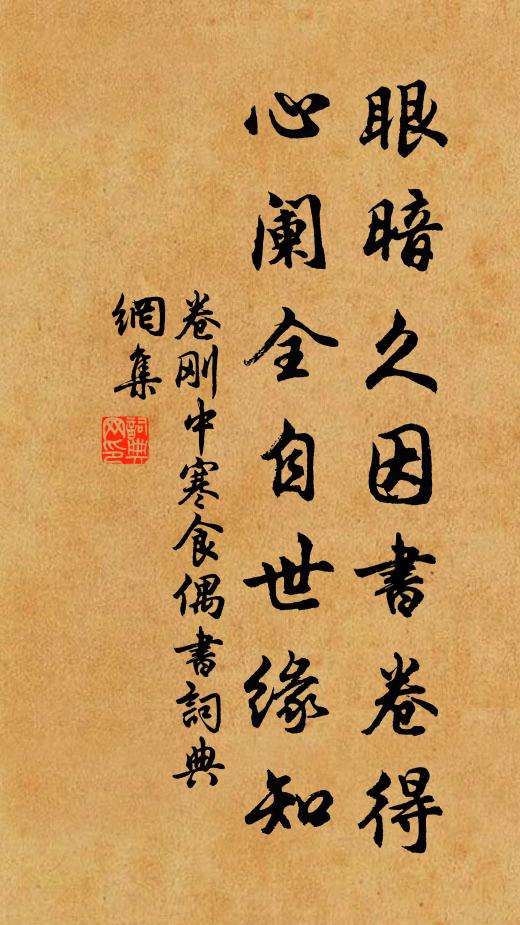 眼暗久因書卷得
心阑全自世缘知
卷刚中寒食偶書詞典
網集
詞典
网印